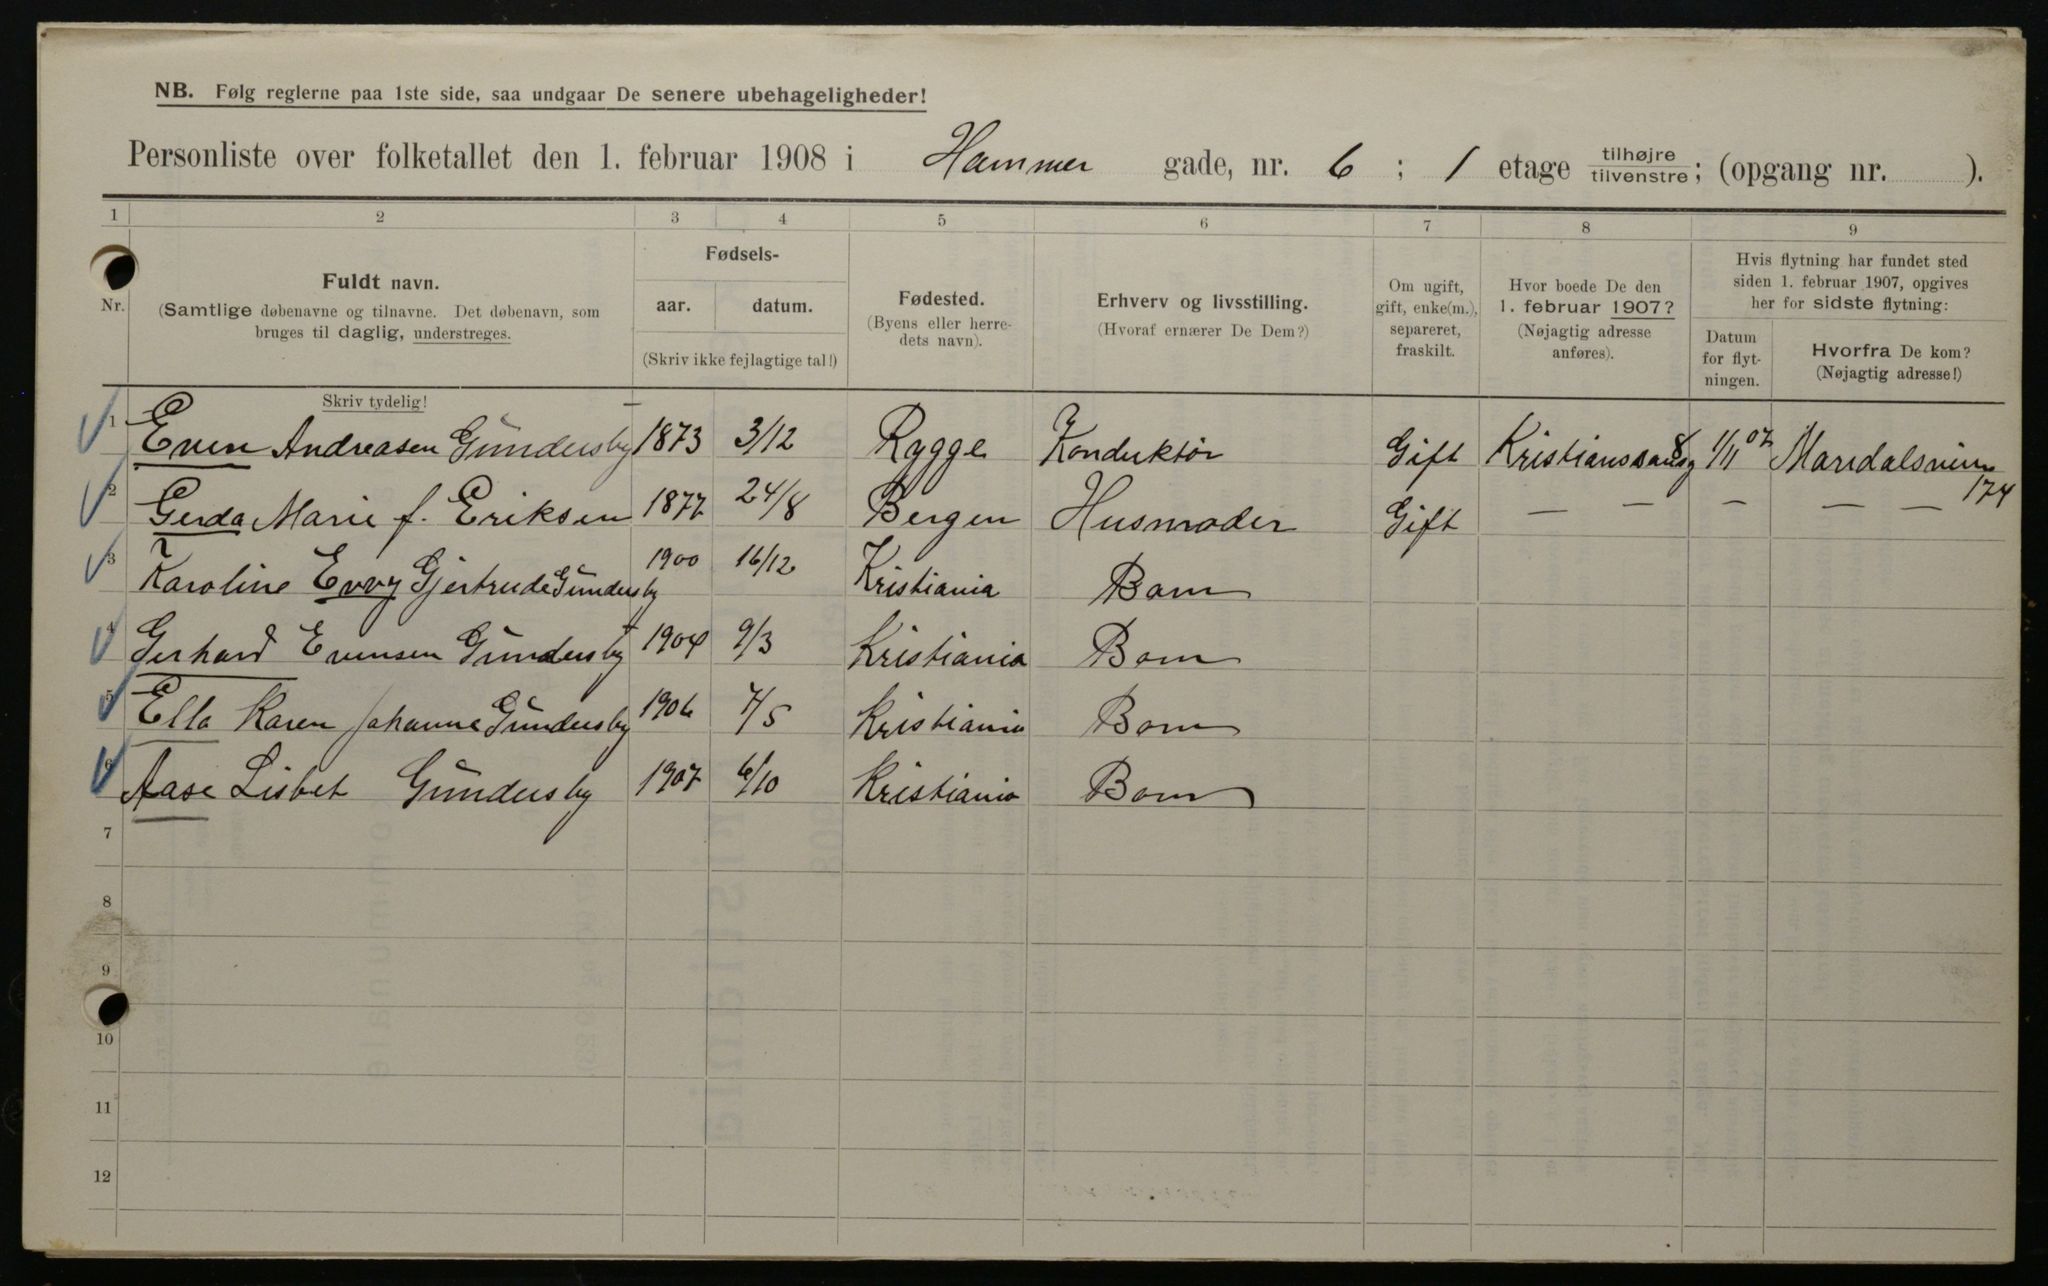 NB. Følg reglerne paa 1ste side, saa undgaar De senere ubehageligheder!
Personliste over folketallet den 1. februar 1908 i Hammer gade, nr. 6 ; 1 etage tilhøjre tilvenstre ; (opgang nr. ).
1 2 3 4 5 6 7 8 9
Nr.
Fuldt navn.
(Samtlige døbenavne og tilnavne. Det døbenavn, som
bruges til daglig, understreges.
Skriv tydelig!
Fødsels-
aar. datum.
(Skriv ikke fejlagtige tal!)
Fødested.
(Byens eller herre-
dets navn).
Erhverv og livsstilling.
(Hvoraf ernærer De Dem?)
Om ugift,
gift, enke(m.),
separeret,
fraskilt.
Hvor boede De den
1. februar 1907?
(Nøjagtig adresse
anføres).
Hvis flytning har fundet sted
siden 1. februar 1907, opgives
her for sidste flytning:
Datum
for flyt-
ningen.
Hvorfra De kom?
(Nøjagtig adresse!)
1 Even Andreasen Gundersby 1873 3/12 Rygge Konduktør Gift 1/11 07
174
2 Gerda Marie f. Eriksen 1877 24/8 Bergen Husmoder Gift — — — — —
3 Karoline Evvy Gjertrude Gundersby 1900 16/12 Kristiania Barn
4 Gerhard Evensen Gundersby 1904 9/3 Kristiania Barn
5 Ella Karen Johanne Gundersby 1906 7/5 Kristiania Barn
6 Aase Lisbet Gundersby 1907 6/10 Kristiania Barn
7
8
9
10
11
12